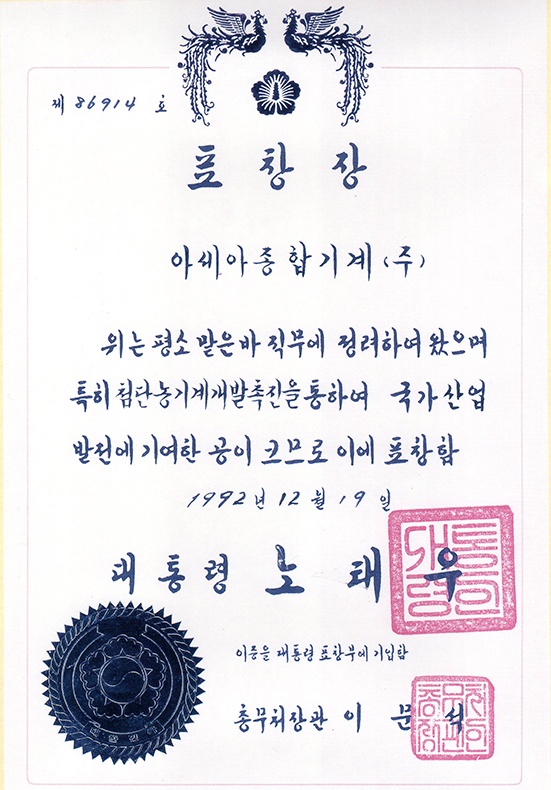 제 86914 호
표창장
아세아종합기계(주)
위는 평소 맡은바 직무에 정려하여 왔으며
특히 첨단농기계개발촉진을 통하여 국가산업
발전에 기여한 공이 크므로 이에 표창함
1992년 12월 19일
대통령 노태우
이증을 대통령표창부에 기입함
총무처장관 이문석